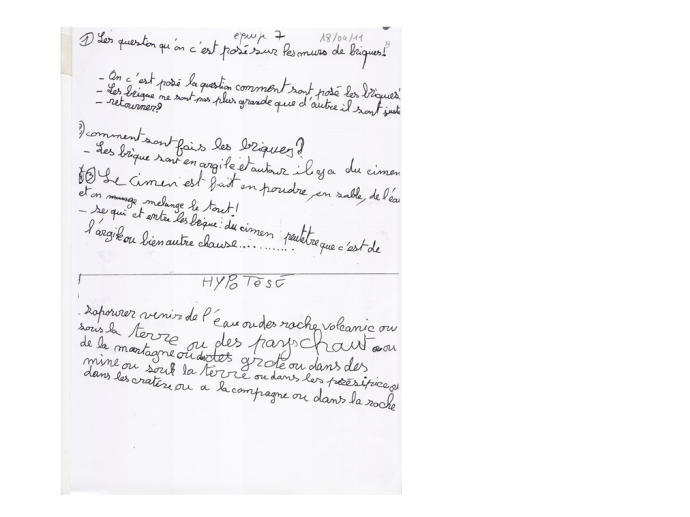 epuip 7 18/04/11
① Les question qu'on c'est posé sur les murs de briques!
- On c'est posé la question comment sont posé les briques!
- Les brique ne sont pas plus grande que d'autre il sont juste
- retourner?
② comment sont fais les briques?
- Les brique sont en argile et autour il y a du cimen
③ Le cimen est fait en poudre, en sable, de l'éau
et on mélange le tout!
- se qui et entre les brique: du cimen peutetre que c'est de
l'argile ou bien autre chause...........
HYPOTESE
sa pourer venir de l'éau ou des roche volcanic ou
sous la terre ou des pays chaut ou
de la montagne ou des grote ou dans des
mine ou sout la terre ou dans les présipices
dans les cratére ou a la compagne ou dans la roche